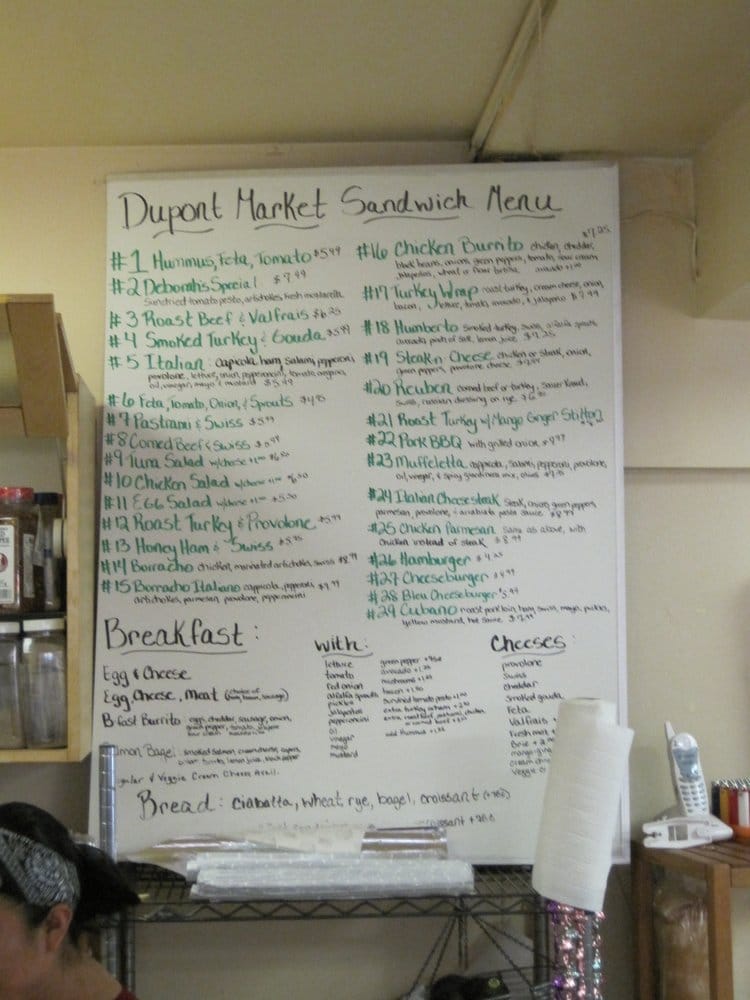 Dupont Market Sandwich Menu
#1 Hummus, Feta, Tomato $5.99
#2 Deborah's Special $7.99
Sundried tomato pesto, artichokes, fresh mozzarella
#3 Roast Beef & Valfrais $6.25
#4 Smoked Turkey & Gouda $5.99
#5 Italian: cappicola, ham, salami, pepperoni,
provolone, lettuce, onion, pepperoncini, tomato, oregano,
oil, vinegar, mayo & mustard $5.99
#6 Feta, Tomato, Onion, & Sprouts
#7 Pastrami & Swiss $5.99
#8 Corned Beef & Swiss
#9 Tuna Salad w/cheese +1.00
#10 Chicken Salad w/cheese +1.00
#11 Egg Salad w/cheese +1.00
#12 Roast Turkey & Provolone $5.99
#13 Honey Ham & Swiss
#14 Borracho chicken, marinated artichokes, swiss $8.99
#15 Borracho Italiano cappicola, pepperoni,
artichokes, parmesan, provolone, pepperoncini
#16 Chicken Burrito chicken, cheddar, $7.25
black beans, onions, green peppers, tomato, sour cream
jalapenos, wheat or flour tortilla avocado +1.00
#17 Turkey Wrap roast turkey, cream cheese, onion,
bacon, lettuce, tomato, avocado, & jalapeno $7.99
#18 Humberto smoked turkey, swiss, alfalfa sprouts
avocado, pinch of salt, lemon juice $7.25
#19 Steak n Cheese chicken or steak, onion,
green peppers, provolone cheese
#20 Reuben corned beef or turkey, sauer kraut,
swiss, russian dressing on rye
#21 Roast Turkey w/Mango Ginger Stilton
#22 Pork BBQ with grilled onion
#23 Muffeletta cappicola, salami, pepperoni, provolone,
oil, vinegar, & spicy giardiniera mix, olives
#24 Italian Cheesesteak Steak, onion, green peppers,
parmesan, provolone, pasta sauce $8.99
#25 Chicken Parmesan same as above, with
chicken instead of steak $8.99
#26 Hamburger $4.25
#27 Cheeseburger $4.99
#28 Bleu Cheeseburger $5.99
#29 Cubano roast pork loin, ham, swiss, mayo, pickles,
yellow mustard, hot sauce
Breakfast:
Egg & Cheese
Egg, Cheese, Meat (choice of
ham, bacon, sausage)
B fast Burrito egg, cheddar, sausage, onion,
green pepper, tomato,
sour cream
mon Bagel: smoked salmon, cream cheese, capers,
lemon juice, black pepper
gular & Veggie Cream Cheese Avail.
with:
lettuce
tomato
red onion
alfalfa sprouts
pickles
jalapenos
pepperoncini
oil
vinegar
mayo
mustard
green pepper
avocado
mushrooms
bacon
sundried tomato pesto
extra turkey or ham
extra roast beef, pastrami, chicken
or corned beef
add hummus
Cheeses:
provolone
Swiss
cheddar
smoked gouda
Feta
Valfrais
Fresh mo
Brie
mango gin
cream che
veggie c
Bread: ciabatta, wheat, rye, bagel, croissant